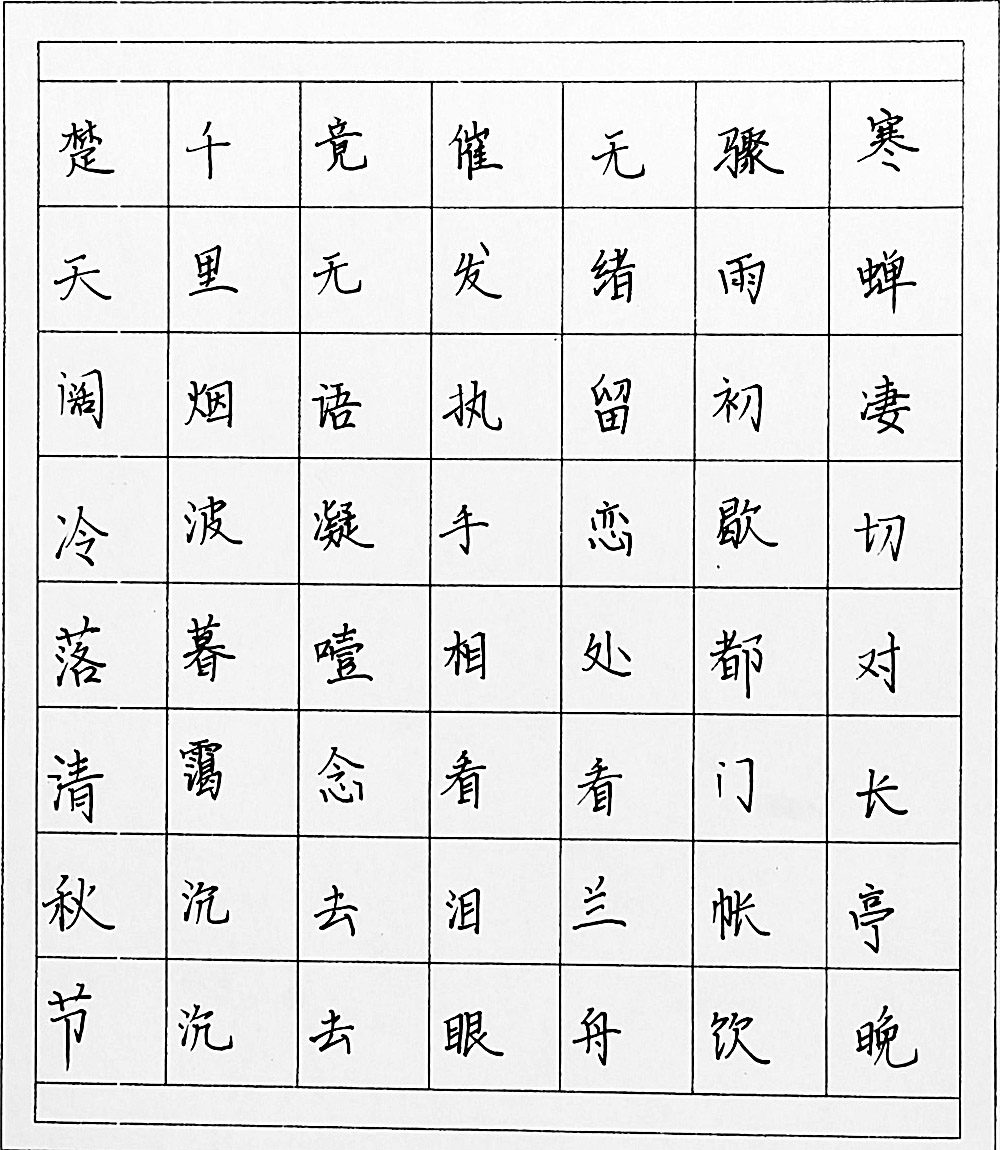 寒蝉凄切对长亭晚
骤雨初歇都门帐饮
无绪留恋处看兰舟
催发执手相看泪眼
竟无语凝噎念去去
千里烟波暮霭沉沉
楚天阔冷落清秋节